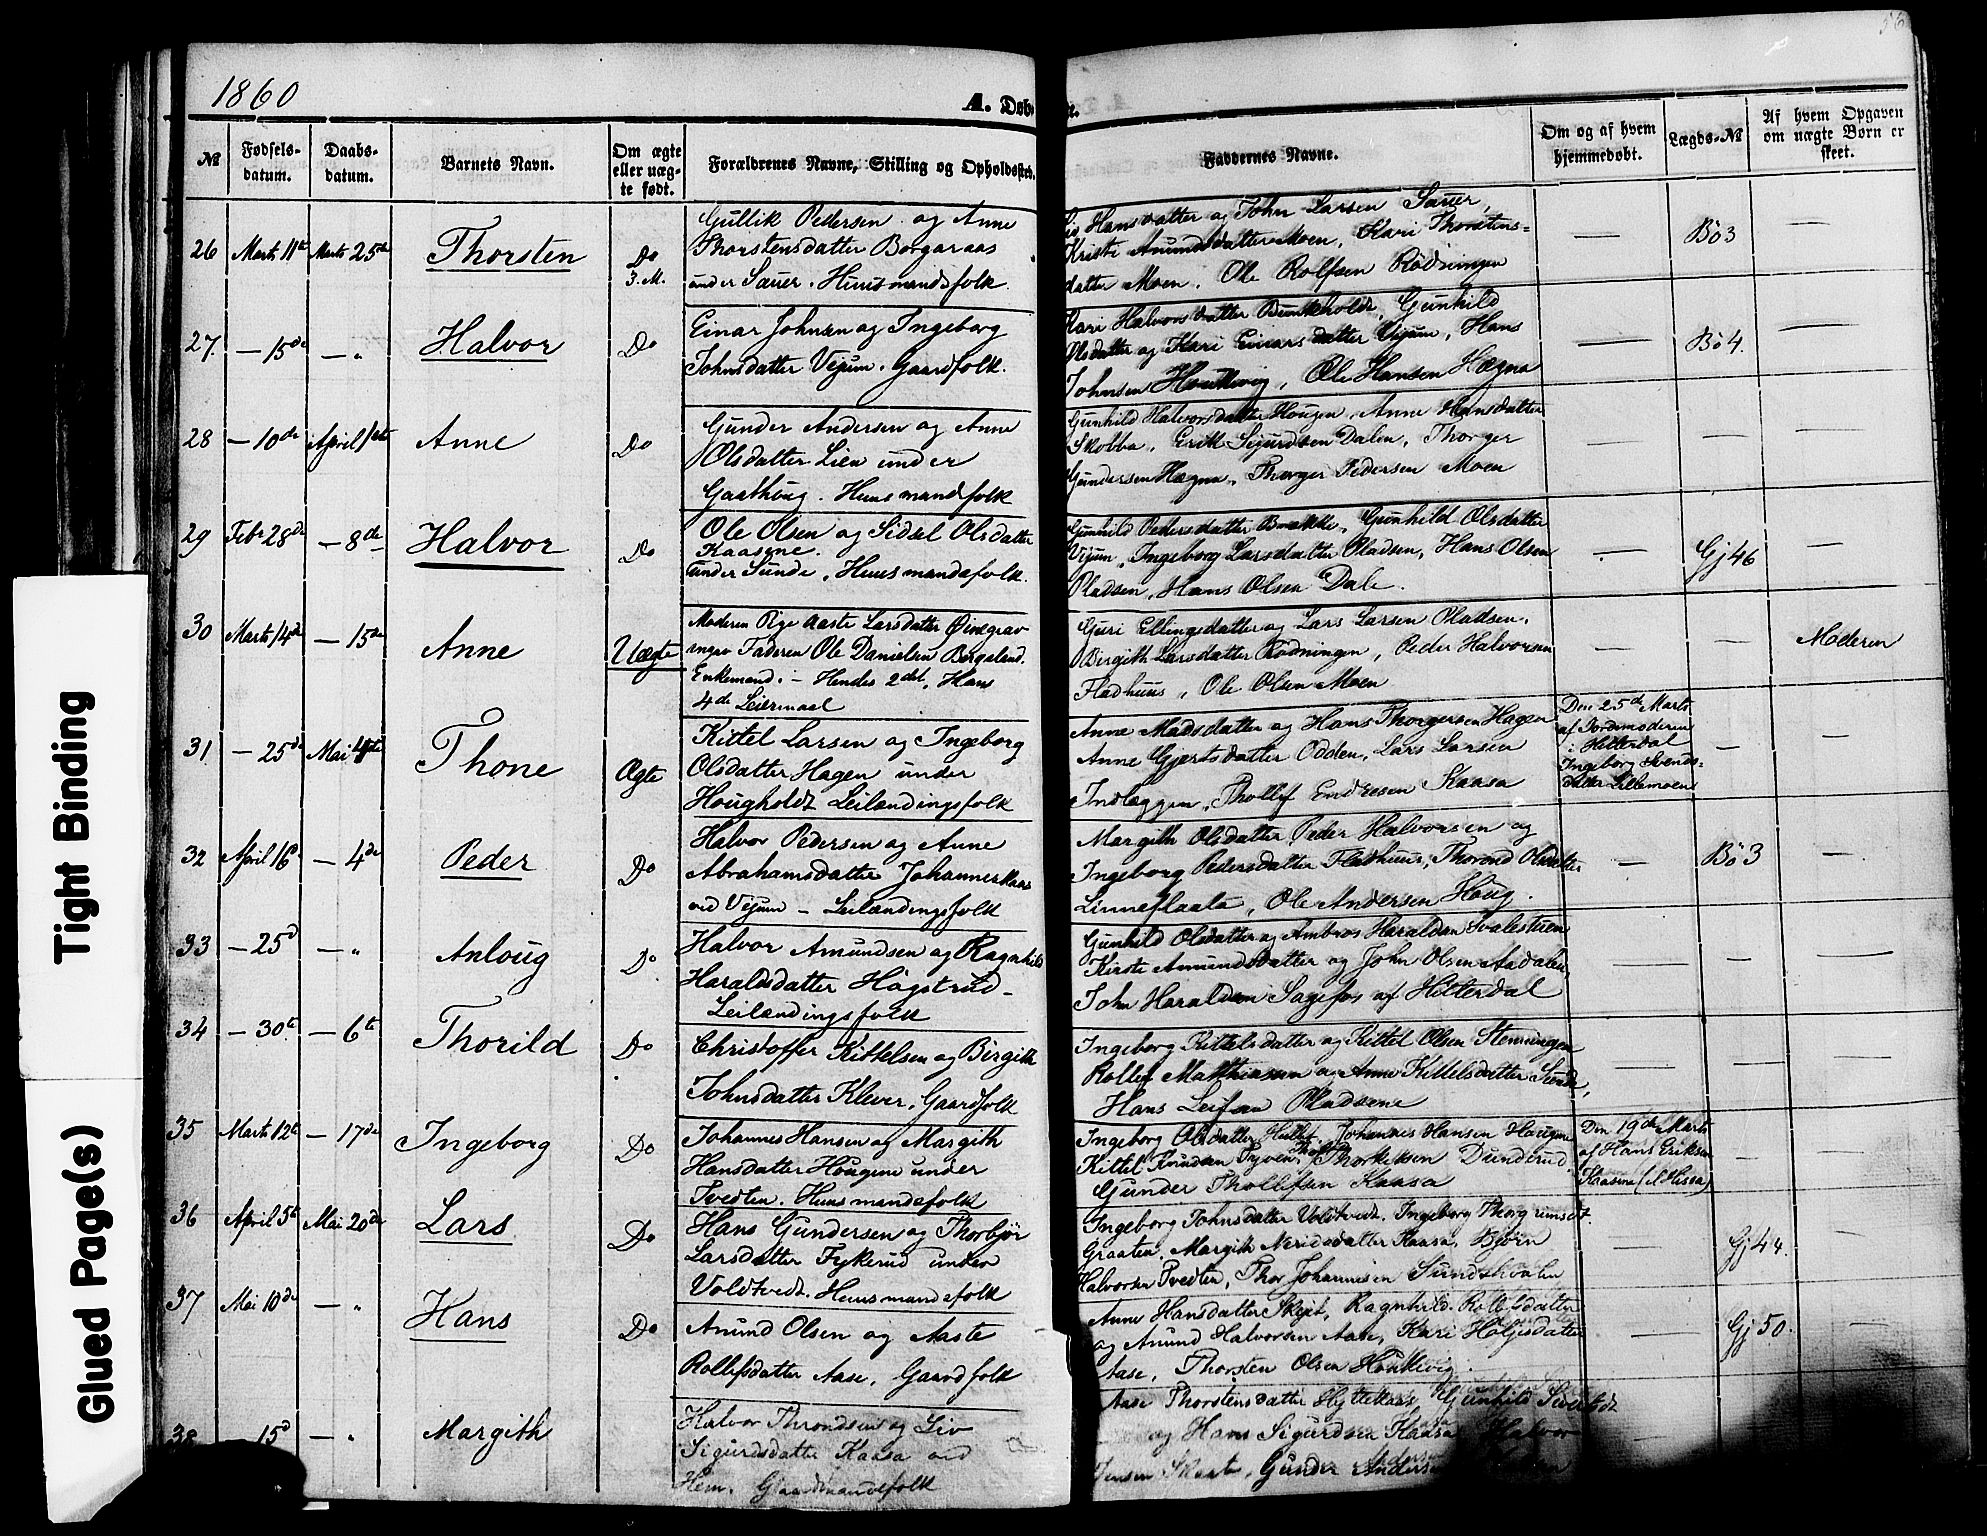 56
1860
A. Døb
e.
№
Fødsels-
datum.
Daabs-
datum.
Barnets Navn.
Om ægte
eller uæg-
te født.
Forældrenes Navne, Stilling og Opholdssted.
Faddernes Navne.
Om og af hvem
hjemmedøbt.
Lægds-№
Af hvem Opgaven
om uægte Børn er
skeet.
26 Marts 11te Marts 25de Thorsten Do
3. M.
Gullik Pedersen og Anne
Thorstensdatter Borgaraas
under Sauer. Huusmandsfolk.
Hansdatter og John Larsen Sauer,
Kristi Amundsdatter Moen, Kari Thorstens-
datter Moen, Ole Rolfsen Rødningen
— Bø 3 —
27. — 15de — " Halvor Do
Einar Johnsen og Ingeborg
Johnsdatter Vejum. Gaardfolk.
Kari Halvorsdatter Bunkeholdt, Gunhild
Olsdatter og Kari Einarsdatter Vejum, Hans
Johnsen Haukvig, Ole Hansen Hægna
— Bø 4. —
28 — 10de April 1ste Anne Do
Gunder Andersen og Anne
Olsdatter Lien under
Gaathoug. Huusmandsfolk
Gunhild Halvorsdatter Hougen, Anne Hansdatter
Skobba, Erik Sigurdsen Dalen, Thorger
Gundersen Hægna, Thorger Pedersen Moen
— — —
29 Febr 28de — 8de Halvor Do
Ole Olsen og Sidsel Olsdatter
Kaasene.
under Sunde, Huusmandsfolk.
Gunhild Pedersdatter Bække, Gunhild Olsdatter
Vejum, Ingeborg Larsdatter Pladsen, Hans Olsen
Pladsen, Hans Olsen Dale.
— Gj 46 —
30 Marts 14de — 15de Anne Uægte
Moderen Pige Aaste Larsdatter Øinegrav-
ingen Faderen Ole Danielsen Bergeland.
Enkemand. — Hendes 2det, Hans
4de Leiermaal
Guri Ellingsdatter og Lars Larsen Pladsen.
Birgith Larsdatter Rødningen, Peder Halvorsen
Fladhuus, Ole Olsen Moen
— — Moderen
31 — 25de Mai 4de Thone Ægte
Kittel Larsen og Ingeborg
Olsdatter Hagen under
Hougholdt Leilændingsfolk
Anne Madsdatter og Hans Thorgersen Hagen
Anne Gjertsdatter Odden, Lars Larsen
Indlæggen, Thollef Endresen Kaasa
Den 25de Marts
af Jordmoderen
i Hitterdal
Ingeborg Svends-
datter Lillemoen
— —
32 April 16de — 4de Peder Do
Halvor Pedersen og Anne
Abrahamsdatter Johanneskaas
ved Vejum — Leilændingsfolk
Margith Olsdatter Peder Halvorsen og
Ingeborg Pedersdatter Fladhuus, Thorond Olsdatter
Linneflaata, Ole Andersen Houg.
— Bø 3 —
33 — 25d — " Anloug Do
Halvor Amundsen og Ragnhild
Haraldsdatter Høgstrud —
Leilændingsfolk
Gunhild Olsdatter og Ambros Haraldsen Svalestuen
Kirsti Amundsdatter og John Olsen Aadalen,
John Haraldsen Sagefos af Hitterdal
— — —
34 — 30te — 6te Thorild Do
Christoffer Kittelsen og Birgith
Johnsdatter Klever, Gaardfolk
Ingeborg Kittelsdatter og Kittel Olsen Stenningen
Rollef Mathiasen og Anne Kittelsdatter Sunde,
Hans Leifsen Pladsene
— — —
35 Marts 12te — 17de Ingeborg Do
Johannes Hansen og Margith
Hansdatter Hougene under
Tvedten. Huusmandsfolk
Ingeborg Olsdatter, Johannes Hansen Haugene
Kittel Knudsen Tyven, Thorkelsen Dunderud
Gunder Thollefsen Kaasa
Den 19de Marts
af Hans Eriksen
Kaasene
— —
36 April 5te Mai 20de Lars Do
Hans Gundersen og Thorbjør
Larsdatter Fykerud under
Voldtvedt. Huusmandsfolk
Ingeborg Johnsdatter Voldtvedt. Ingeborg Thorgrimsdt.
Graaten, Margith Neridsdatter Kaasa, Bjørn
Halvorsen Tvedten, Thor Johannesen Sundskvalen
— Gj 44. —
37 Mai 10de — " Hans Do
Amund Olsen og Aaste
Rollefsdatter Aase, Gaardfolk
Anne Hansdatter Skejet, Ragnhild Rollefsdatter
og Anund Halvorsen Aase, Kari Holjesdatter
Aase, Thorsten Olsen Haukvig.
— Gj 50. —
38 — 15d — " Margith
Halvor Throndsen og Liv
Sigurdsdatter Kaasa ved
Hem. Gaardmandsfolk
Aase Thorstensdatter Hyttekaas, Gunhild
og Hans Sigurdsen Kaasa, Halvor
Jensen Skaat, Gunder Andersen
Tight Binding
Glued Page(s)